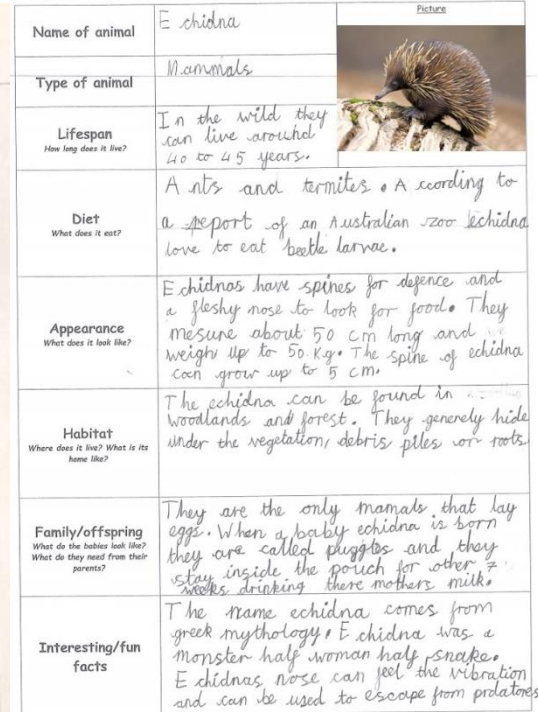 Picture
Name of animal
E chidna
Type of animal
Mammals
Lifespan
How long does it live?
In the wild they
can live around
40 to 45 years.
Diet
What does it eat?
Ants and termites. According to
a report of an Australian zoo echidna
love to eat beetle larvae.
Appearance
What does it look like?
Echidnas have spines for defence and
a fleshy nose to look for food. They
mesure about 50 cm long and
weigh up to 50 Kg. The spine of echidna
can grow up to 5 cm.
Habitat
Where does it live? What is its
home like?
The echidna can be found in
woodlands and forest. They generely hide
under the vegetation, debris piles or roots
Family/offspring
What do the babies look like?
What do they need from their
parents?
They are the only mamals that lay
eggs. When a baby echidna is born
they are called puggles and they
stay inside the pouch for other 7
weeks drinking there mothers milk.
Interesting/fun
facts
The name echidna comes from
greek mythology. Echidna was a
monster half woman half snake.
Echidnas nose can feel the vibration
and can be used to escape from prdatores